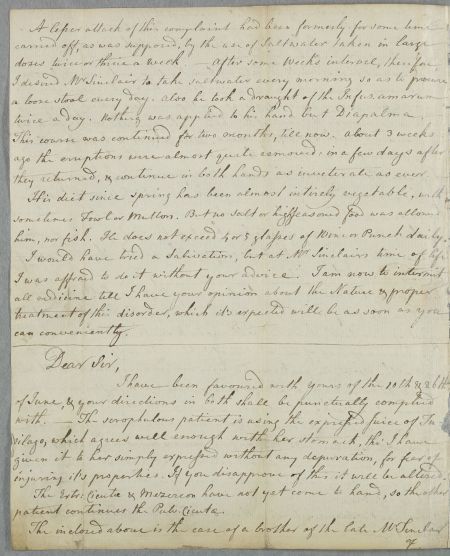 A lesser attack of this complaint had been formerly for some time
carried off, as was supposed, by the use of Saltwater taken in large
doses twice or thrice a week. After some weeks interval, therefore
I desired Mr Sinclair to take saltwater every morning so as to procure
a loose stool every day. Also he took a draught of the Infus. amarum
twice a day. Nothing was applied to his hand but Diapalma.
This course was continued for two months, till now. about 3 weeks
ago the eruptions were almost quite removed. in a few days after
they returned, & continue in both hands as inveterate as ever.
His diet since spring has been almost intirely vegetable, with
sometimes Fowl or Mutton. But no salt or highseasoned food was allowed
him, nor fish. He does not exceed 4 or 5 glasses of Wine or Punch daily.
I would have tried a Salivation, but at Mr Sinclairs time of life
I was affraid to do it without your advice. I am now to intermit
all medicine till I have your opinion about the Nature & proper
treatment of this disorder, which it's expected will be as soon as you
can conveniently.
Dear Sir,
I have been favoured with yours of the 10th & 26th
of June, & your directions in both shall be punctually complied
with. The scrophulous patient is using the expressed juice of Tu
silago, which agrees well enough with her stomach, tho' I have
given it to her simply expressed without any depuration, for fear of
injuring it's properties. If you disapprove of this it will be altered.
The Extr. Cicutæ & Mezereon have not yet come to hand, so the other
patient continues the Pulv. Cicutæ.
The inclosed above is the case of a brother of the late Mr Sinclair
of